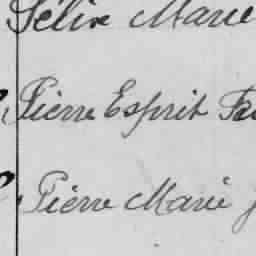 Félix Marie
Pierre Esprit
Pierre Marie